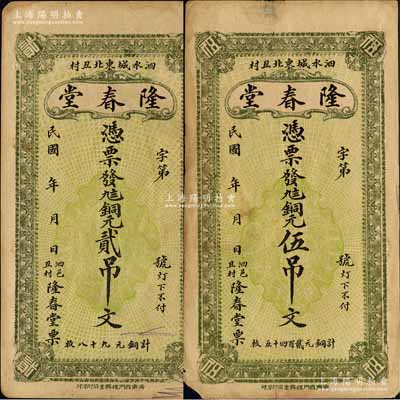 上海陽明拍賣
村丑北東城水泗
堂春隆
字第
憑票發九八銅元貳吊文
民國 年 月 日
號 灯下不付
泗邑丑村 隆春堂票
枚八十九元銅計
村丑北東城水泗
堂春隆
字第
憑票發銅元伍吊文
民國 年 月 日
號 灯下不付
泗邑丑村 隆春堂票
枚五十四百貳元銅計
上海陽明拍賣